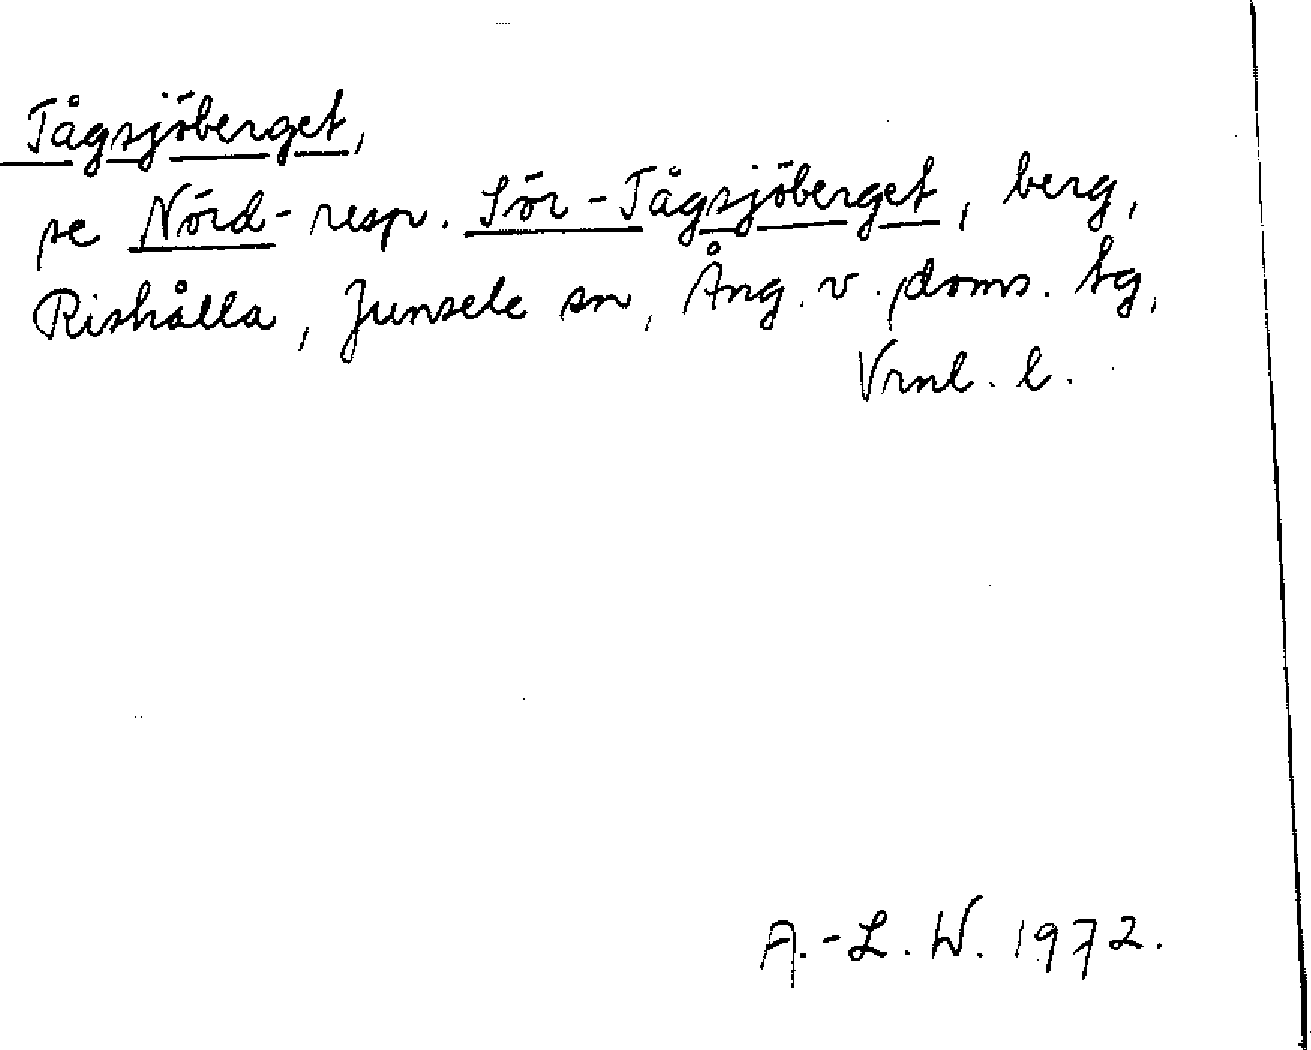 Tågsjöberget,
se Nörd- resp. Sör-Tågsjöberget, berg,
Rishålla, Junsele sn, Ång. v. doms. bg,
Vrnl. l.
A.-L. W. 1972.